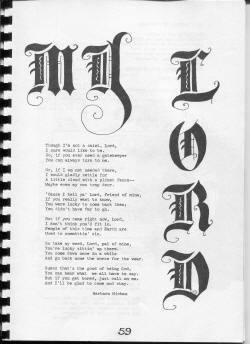 MY LORD
Though I'm not a saint, Lord,
I sure would like to be.
So, if you ever need a gatekeeper
You can always turn to me.
Or, if I am not needed there,
I would gladly settle for
A little cloud with a picket fence--
Maybe even my own trap door.
'Cause I tell ya' Lord, friend of mine,
If you really want to know,
You were lucky to come back then;
You didn't have far to go.
But if you came right now, Lord,
I don't think you'd fit in.
People of this time and Earth are
Used to committin' sin.
So take my word, Lord, pal of mine,
You're lucky sittin' up there.
You come down once in a while
And go back none the worse for the wear.
Guess that's the good of being God,
You can hear what we all have to say.
But if you get bored, just call on me.
And I'll be glad to come and stay.
Barbara
59